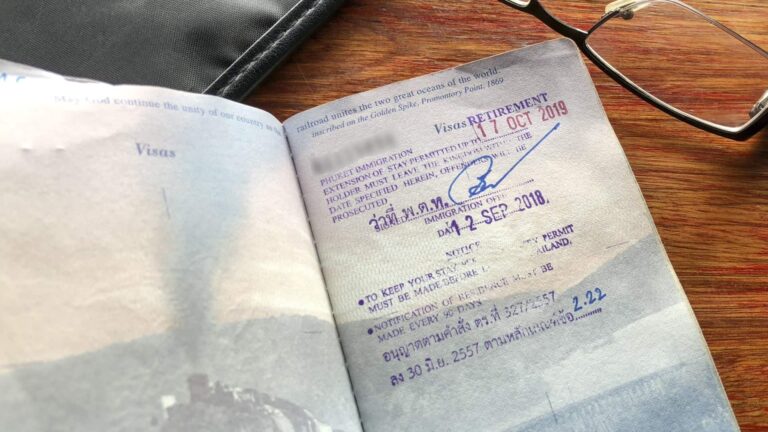 May God continue the unity of our country as the
Visas
railroad unites the two great oceans of the world.
inscribed on the Golden Spike, Promontory Point, 1869
Visas
RETIREMENT
PHUKET IMMIGRATION
EXTENSION OF STAY PERMITTED UP TO 17 OCT 2019
HOLDER MUST LEAVE THE KINGDOM WITHIN THE
DATE SPECIFIED HEREIN, OFFENDERS WILL BE
PROSECUTED
ว่าที่ พ.ต.ท.
SIGNED IMMIGRATION OFF
DATE 12 SEP 2018
NOTICE
• TO KEEP YOUR STAY PERMIT
MUST BE MADE BEFORE
• NOTIFICATION OF RESIDENCE MUST BE
MADE EVERY 90 DAYS
อนุญาตตามคำสั่ง ตร.ที่ 327/2557
ลง 30 มิ.ย. 2557 ตามหลักเกณฑ์ข้อ 2.22